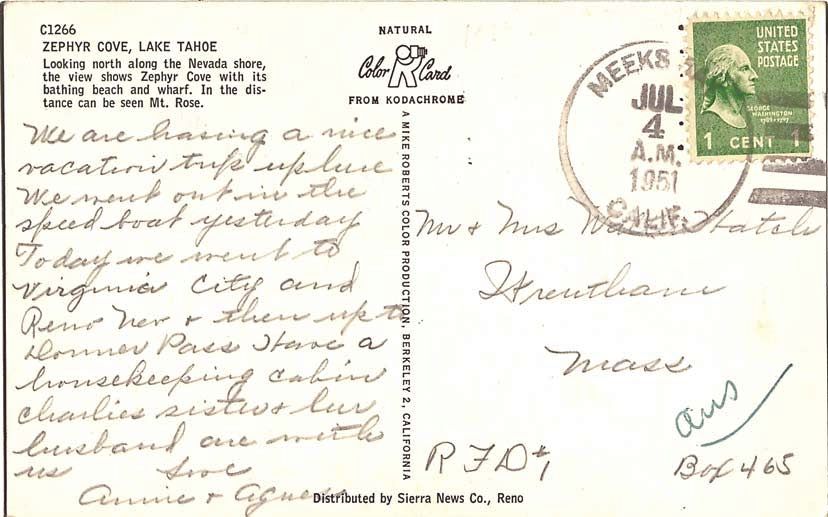 C1266
ZEPHYR COVE, LAKE TAHOE
Looking north along the Nevada shore,
the view shows Zephyr Cove with its
bathing beach and wharf. In the dis-
tance can be seen Mt. Rose.
NATURAL
Color Card
FROM KODACHROME
A MIKE ROBERTS COLOR PRODUCTION, BERKELEY 2, CALIFORNIA
MEEKS
JUL
4
A.M.
1951
CALIF.
UNITED
STATES
POSTAGE
GEORGE
WASHINGTON
1789-1797
1 CENT 1
We are having a nice
vacation trip up here
We went out in the
speed boat yesterday
Today we went to
Virginia City and
Reno Nev & then up to
Donner Pass Have a
housekeeping cabin
Charlies sister & her
husband are with
us Love
Annie & Agness
Mr & Mrs Hatch
Wrentham
Mass
ans
R F D #1
Box 465
Distributed by Sierra News Co., Reno